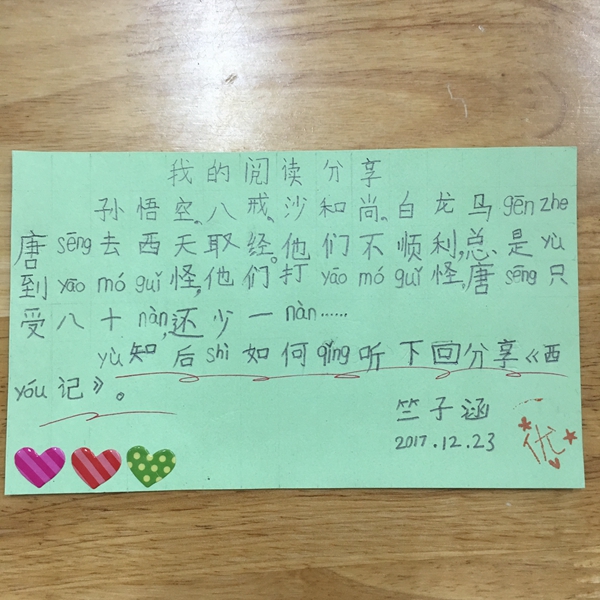 我的阅读分享
孙悟空、八戒、沙和尚、白龙鸟gēn zhe
唐sēng去西天取经。他们不顺利,总是yù
到yāo mó guǐ怪,他们打yāo mó guǐ怪,唐sēng只
受八十nàn,还少一nàn……
yù知后shì如何qǐng听下回分享《西
yóu记》。
竺子涵
2017.12.23
优